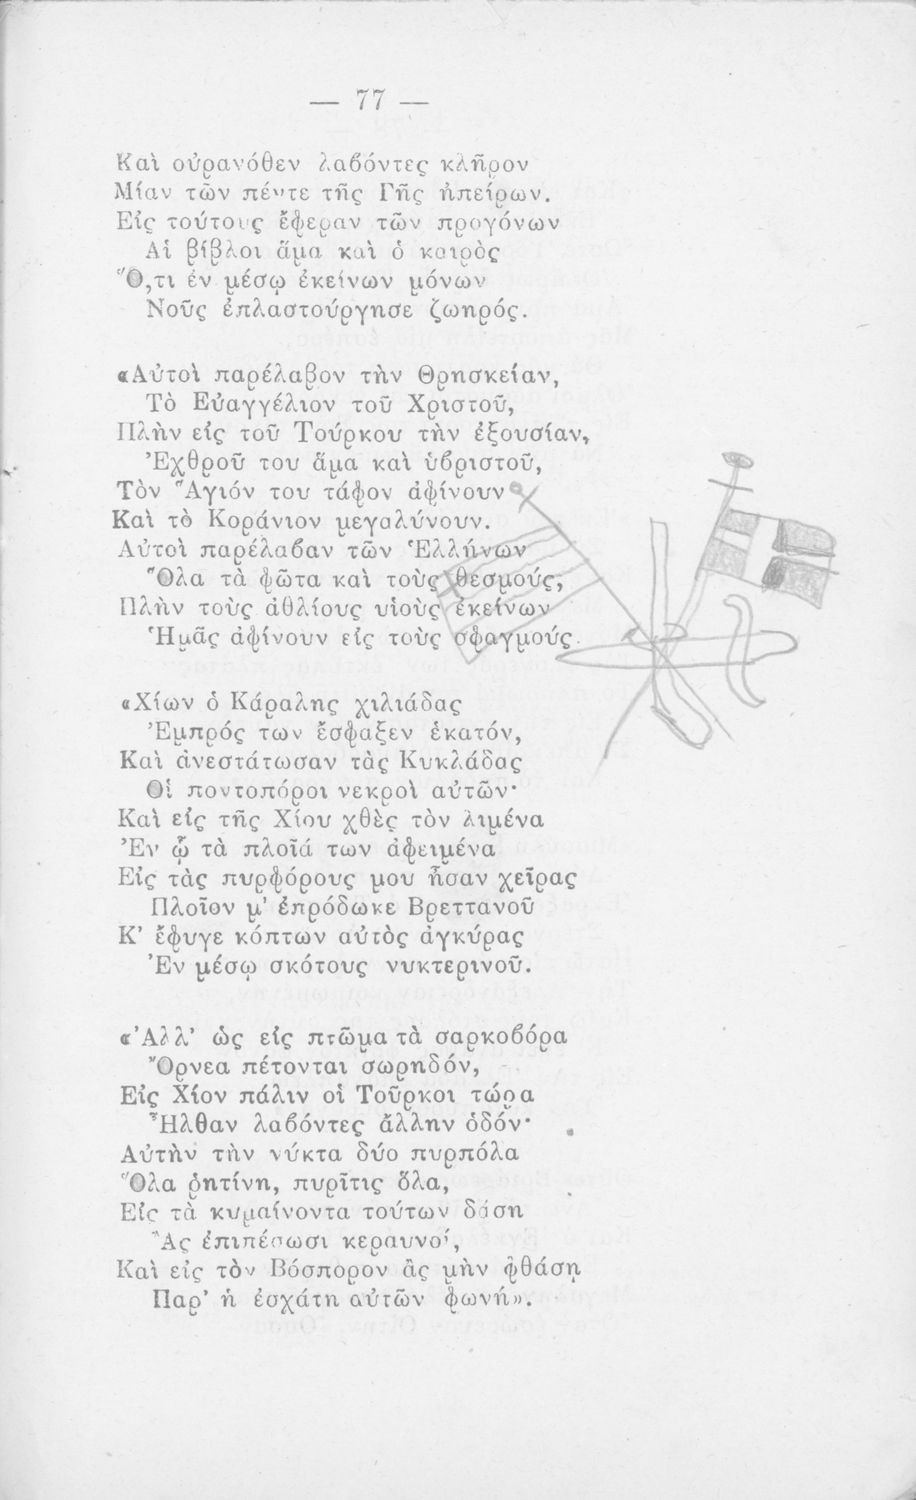 — 77 —
Καὶ οὐρανόθεν λαβόντες κλῆρον
Μίαν τῶν πέντε τῆς Γῆς ἠπείρων.
Εἰς τούτους ἔφεραν τῶν προγόνων
Αἱ βίβλοι ἅμα καὶ ὁ καιρὸς
Ὅ,τι ἐν μέσῳ ἐκείνων μόνων
Νοῦς ἐπλαστούργησε ζωηρός.
«Αὐτοὶ παρέλαβον τὴν Θρησκείαν,
Τὸ Εὐαγγέλιον τοῦ Χριστοῦ,
Πλὴν εἰς τοῦ Τούρκου τὴν ἐξουσίαν,
Ἐχθροῦ του ἅμα καὶ ὑβριστοῦ,
Τὸν Ἅγιόν του τάφον ἀφίνουν
Καὶ τὸ Κοράνιον μεγαλύνουν.
Αὐτοὶ παρέλαβαν τῶν Ἑλλήνων
Ὅλα τὰ φῶτα καὶ τοὺς θεσμούς,
Πλὴν τοὺς ἀθλίους υἱοὺς ἐκείνων
Ἡμᾶς ἀφίνουν εἰς τοὺς σφαγμούς.
«Χίων ὁ Κάραλης χιλιάδας
Ἐμπρός των ἔσφαξεν ἑκατόν,
Καὶ ἀνεστάτωσαν τὰς Κυκλάδας
Οἱ ποντοπόροι νεκροὶ αὐτῶν·
Καὶ εἰς τῆς Χίου χθὲς τὸν λιμένα
Ἐν ᾧ τὰ πλοῖά των ἀφειμένα
Εἰς τὰς πυρφόρους μου ἦσαν χεῖρας
Πλοῖον μ' ἐπρόδωκε Βρεττανοῦ
Κ' ἔφυγε κόπτων αὐτὸς ἀγκύρας
Ἐν μέσῳ σκότους νυκτερινοῦ.
«Ἀλλ' ὡς εἰς πτῶμα τὰ σαρκοβόρα
Ὄρνεα πέτονται σωρηδόν,
Εἰς Χίον πάλιν οἱ Τοῦρκοι τώρα
Ἦλθαν λαβόντες ἄλλην ὁδόν·
Αὐτὴν τὴν νύκτα δύο πυρπόλα
Ὅλα ῥητίνη, πυρῖτις ὅλα,
Εἰς τὰ κυμαίνοντα τούτων δάση
Ἂς ἐπιπέσωσι κεραυνοί,
Καὶ εἰς τὸν Βόσπορον ἂς μὴν φθάσῃ
Παρ' ἡ ἐσχάτη αὐτῶν φωνή».